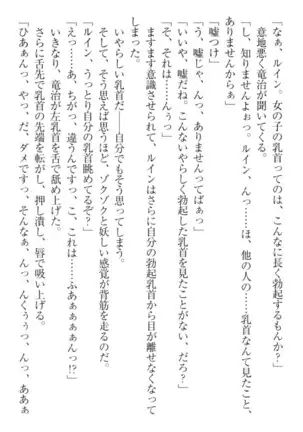 「なぁ、ルイン。女の子の乳首ってのは、こんなに長く勃起するもんか?」
意地悪く竜治が聞いてくる。
「し、知りませんよぉっ。ルイン、んっ……ほ、他の人の……乳首なんて見たこと、
ありませんからぁ」
「嘘つけ」
「う、嘘じゃ、んっ、ありませんってばぁっ」
「いいや、嘘だね。こんないやらしく勃起した乳首を見たことがない、だろ?」
「そ、それは、んぅっ……」
ますます意識させられて、ルインはさらに自分の勃起乳首から目が離せなくなって
しまった。
いやらしい乳首だ――自分でもそう思ってしまう。
そして、そう思えば思うほど、ゾクゾクと妖しい感覚が背筋を走るのだ。
「ルイン、うっとり自分の乳首眺めてるぞ」
「えっ……あ、ちがっ、違うんですっ、こ、これは……ふあぁぁぁんっ!?」
いきなり、竜治が左乳首を舌で舐め上げた。
さらに舌先で乳首の先端を転がし、押し潰し、唇で吸い上げる。
「ひあぁんっ、やっ、だ、ダメですっ、そんなぁ、んっ、んくぅぅっ、んっ、ああぁ